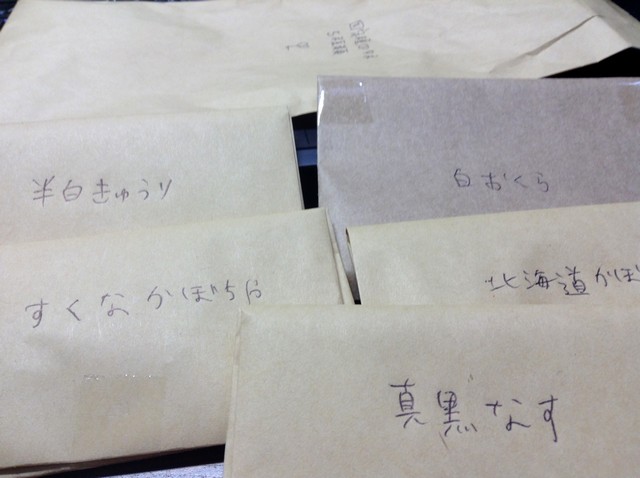 半白きゅうり
白おくら
すくなかぼちゃ
北海道かぼ
真黒なす